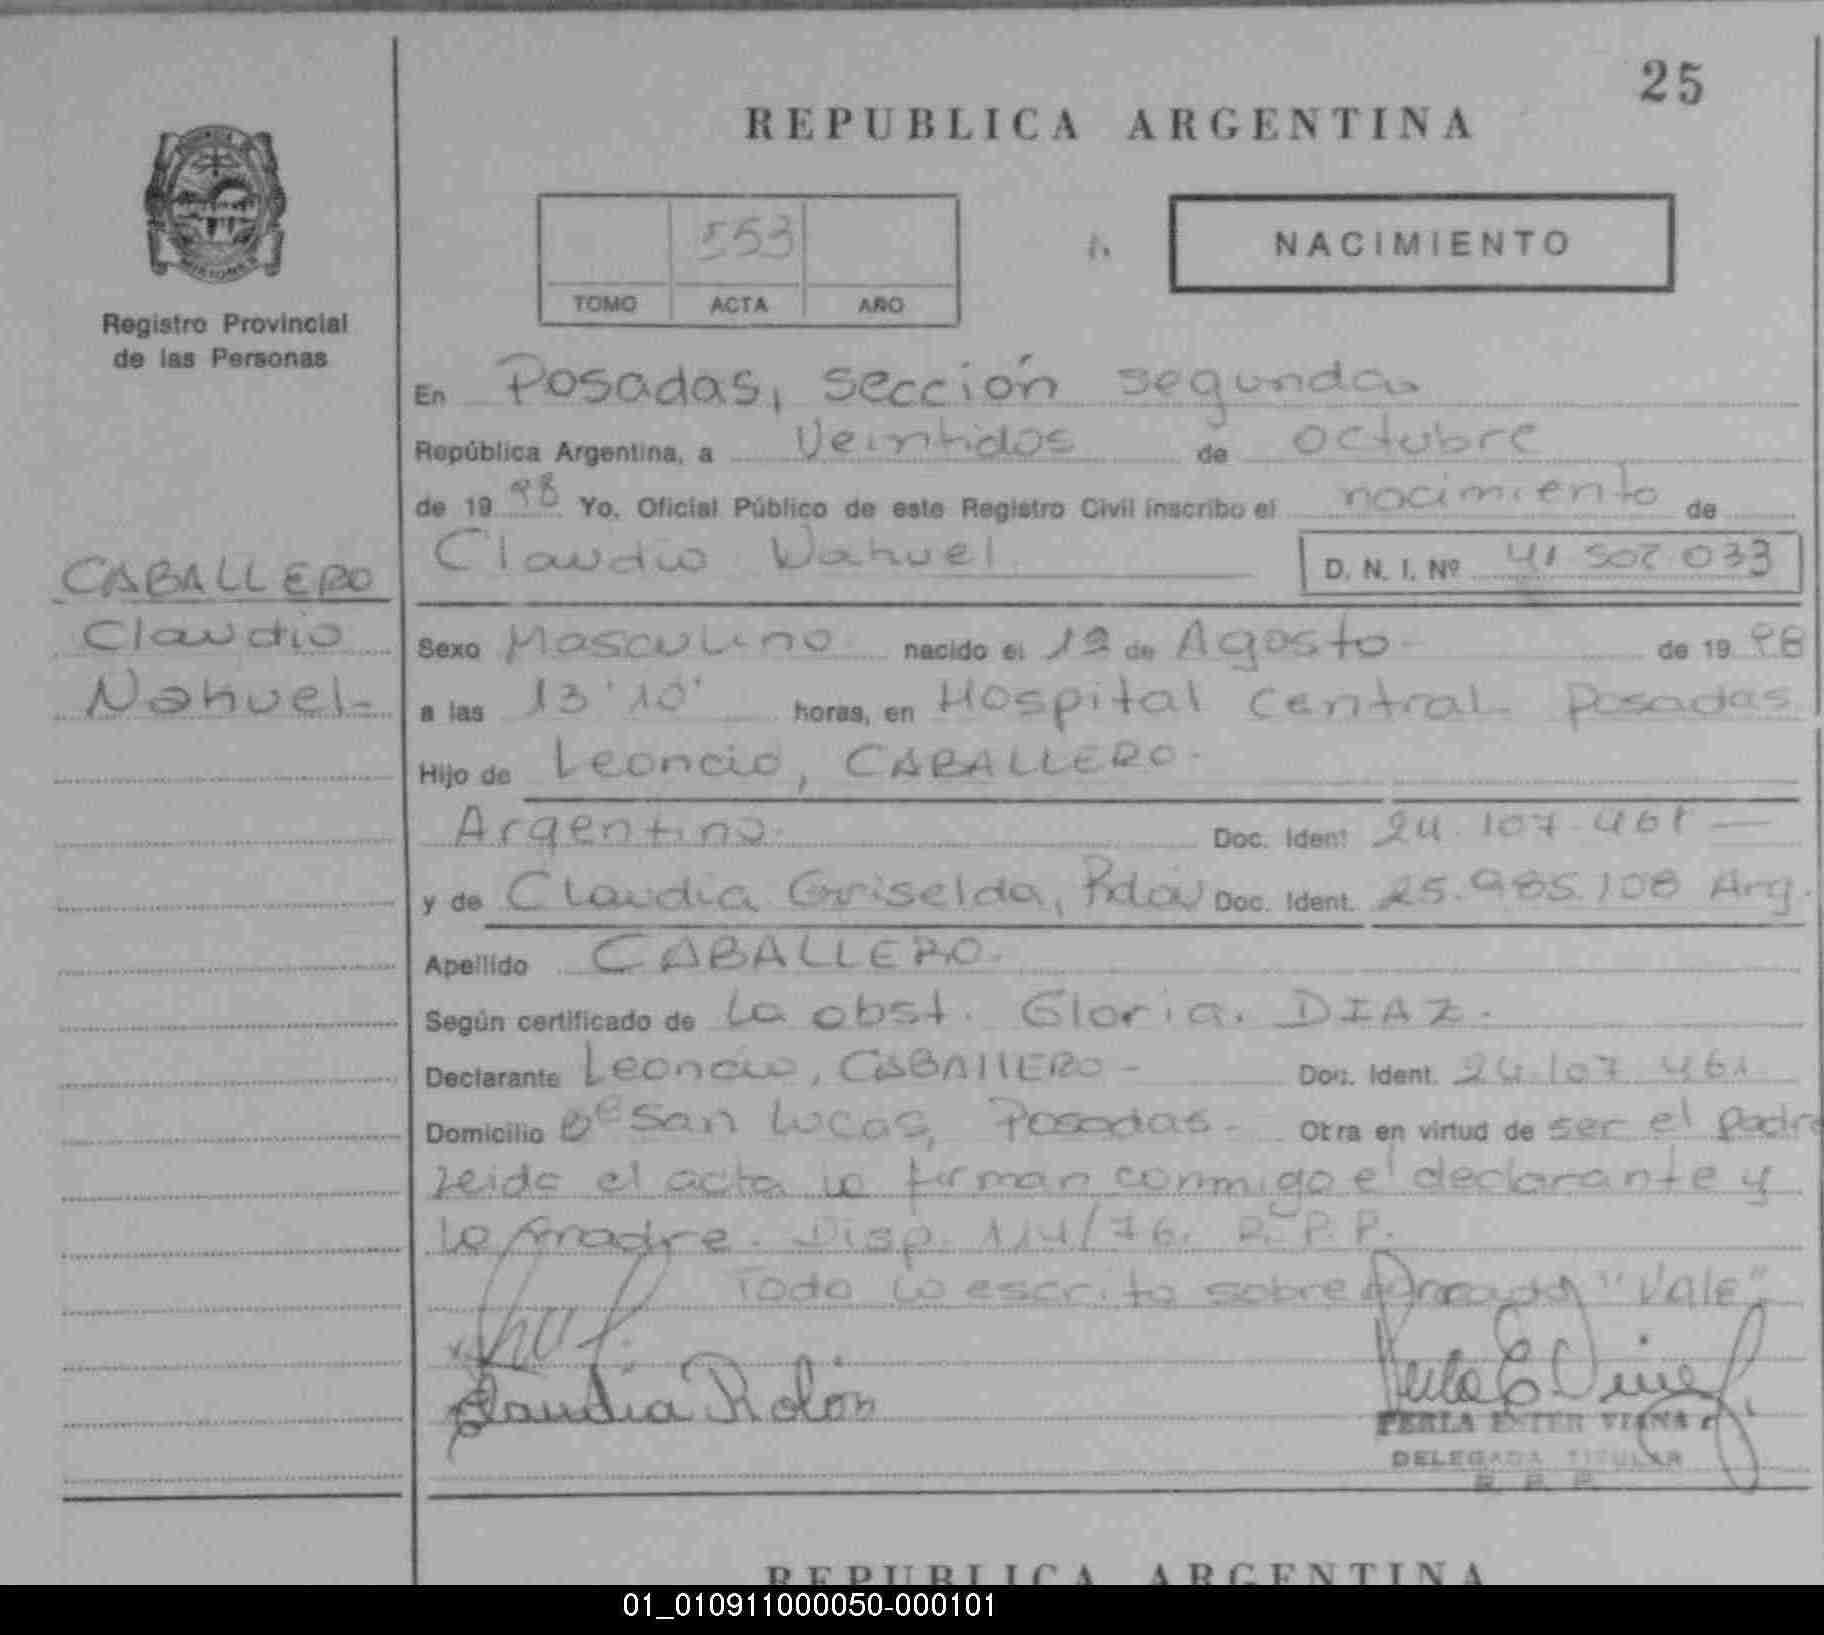 25
REPUBLICA ARGENTINA
553
TOMO ACTA AÑO
NACIMIENTO
Registro Provincial
de las Personas
En Posadas, sección segunda
República Argentina, a Veintidos de octubre
de 1998 Yo, Oficial Público de este Registro Civil inscribo el nacimiento de
Claudio Nahuel D. N. I. Nº 41 502 033
CABALLERO
Claudio
Nahuel-
Sexo Masculino nacido el de Agosto- de 1998
a las 13'10' horas, en Hospital Central- Posadas
Hijo de Leoncio, CABALLERO-
Argentino. Doc. Ident 24.107.461 —
y de Claudia Griselda, Rolón Doc. Ident. 25.985.108 Arg.
Apellido CABALLERO.
Según certificado de la obst. Gloria. DIAZ.
Declarante Leoncio, CABALLERO - Doc. Ident. 24.107.461
Domicilio Bº San Lucas, Posadas- Otra en virtud de ser el padre
Leida el acta la firman conmigo el declarante y
la madre. Disp. 114/76. R.P.P.
Todo lo escrito sobre "Vale"
Claudia Rolón
PERLA ESTER VIANA
DELEGADA TITULAR
R. P. P.
REPUBLICA ARGENTINA
01_010911000050-000101